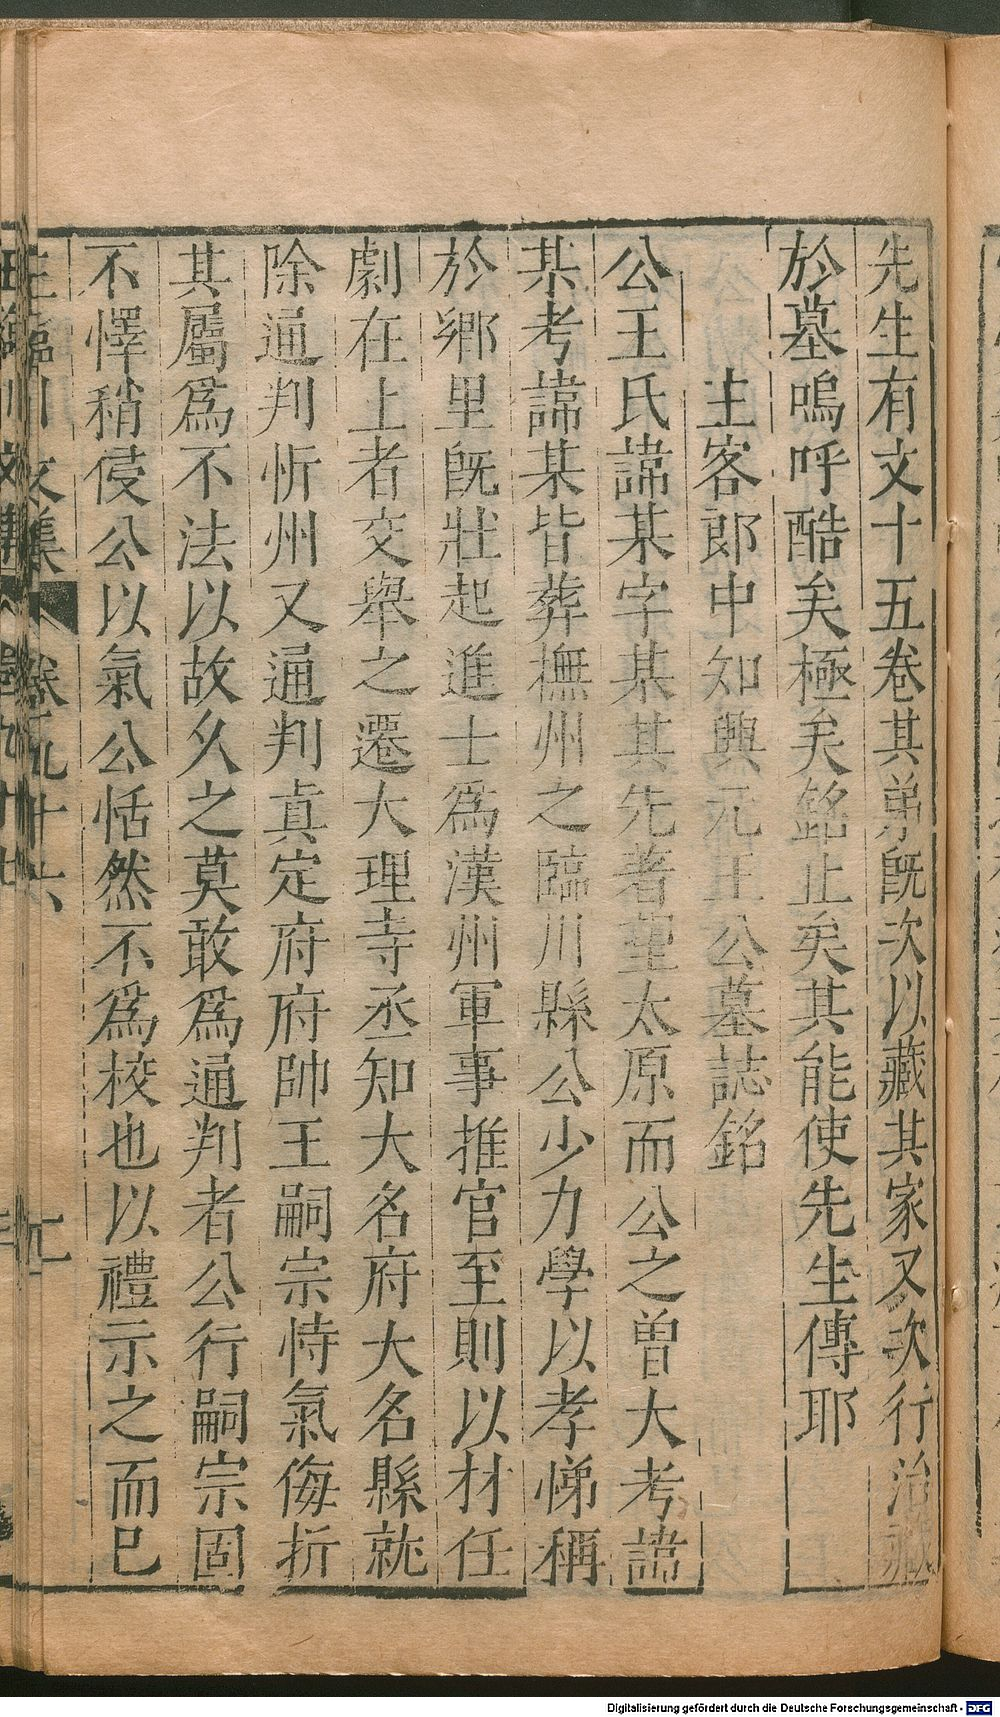 先生有文十五卷其弟既次以藏其家又次行治藏
於墓嗚呼酷矣極矣銘止矣其能使先生傳耶
主客郎中知興元王公墓誌銘
公王氏諱某字某其先著望太原而公之曾大考諱
某考諱某皆葬撫州之臨川縣公少力學以孝悌稱
於鄉里既壯起進士爲漢州軍事推官至則以材任
劇在上者交舉之遷大理寺丞知大名府大名縣就
除通判忻州又通判真定府府帥王嗣宗恃氣侮折
其屬爲不法以故久之莫敢爲通判者公行嗣宗固
不懌稍侵公以氣公恬然不爲校也以禮示之而已
王臨川文集 卷九十六
Digitalisierung gefördert durch die Deutsche Forschungsgemeinschaft - DFG